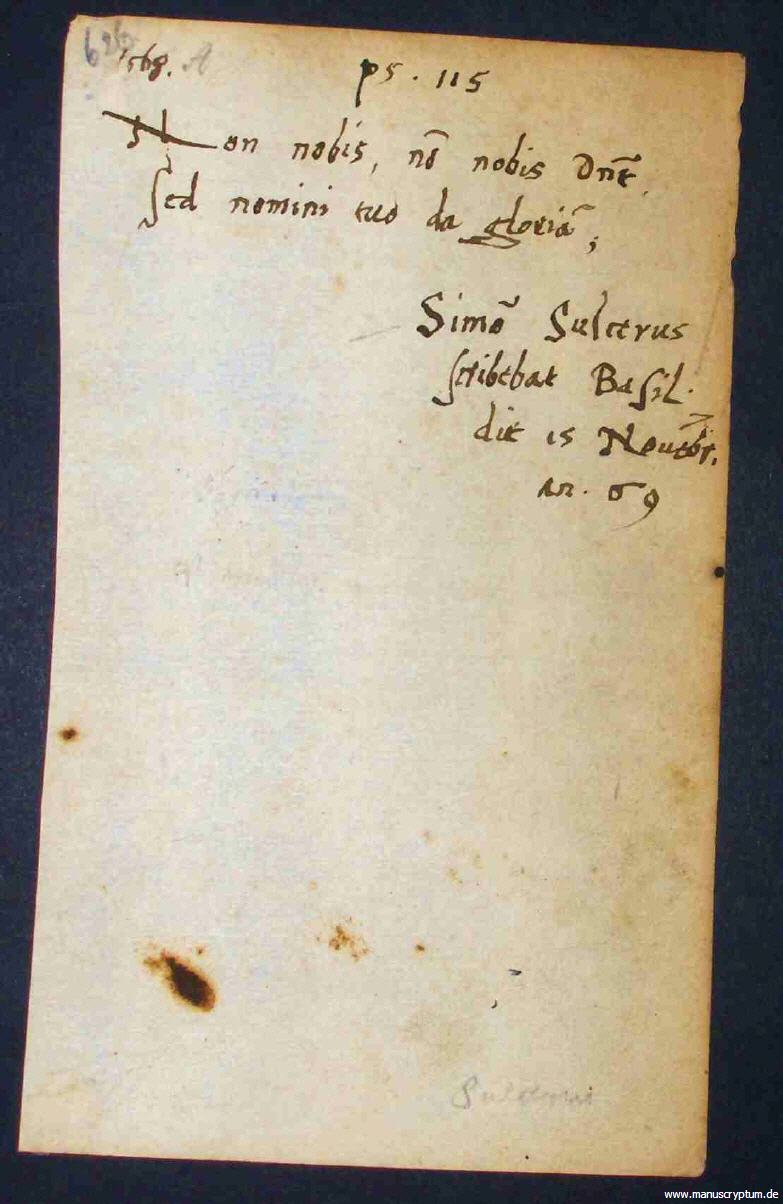 626
1568. A
ps. 115
Non nobis, nō nobis Dnē,
Sed nomini tuo da gloriā;
Simō Sulcerus
scribebat Basil.
die 15 Nouēbr.
an. 69
www.manuscryptum.de